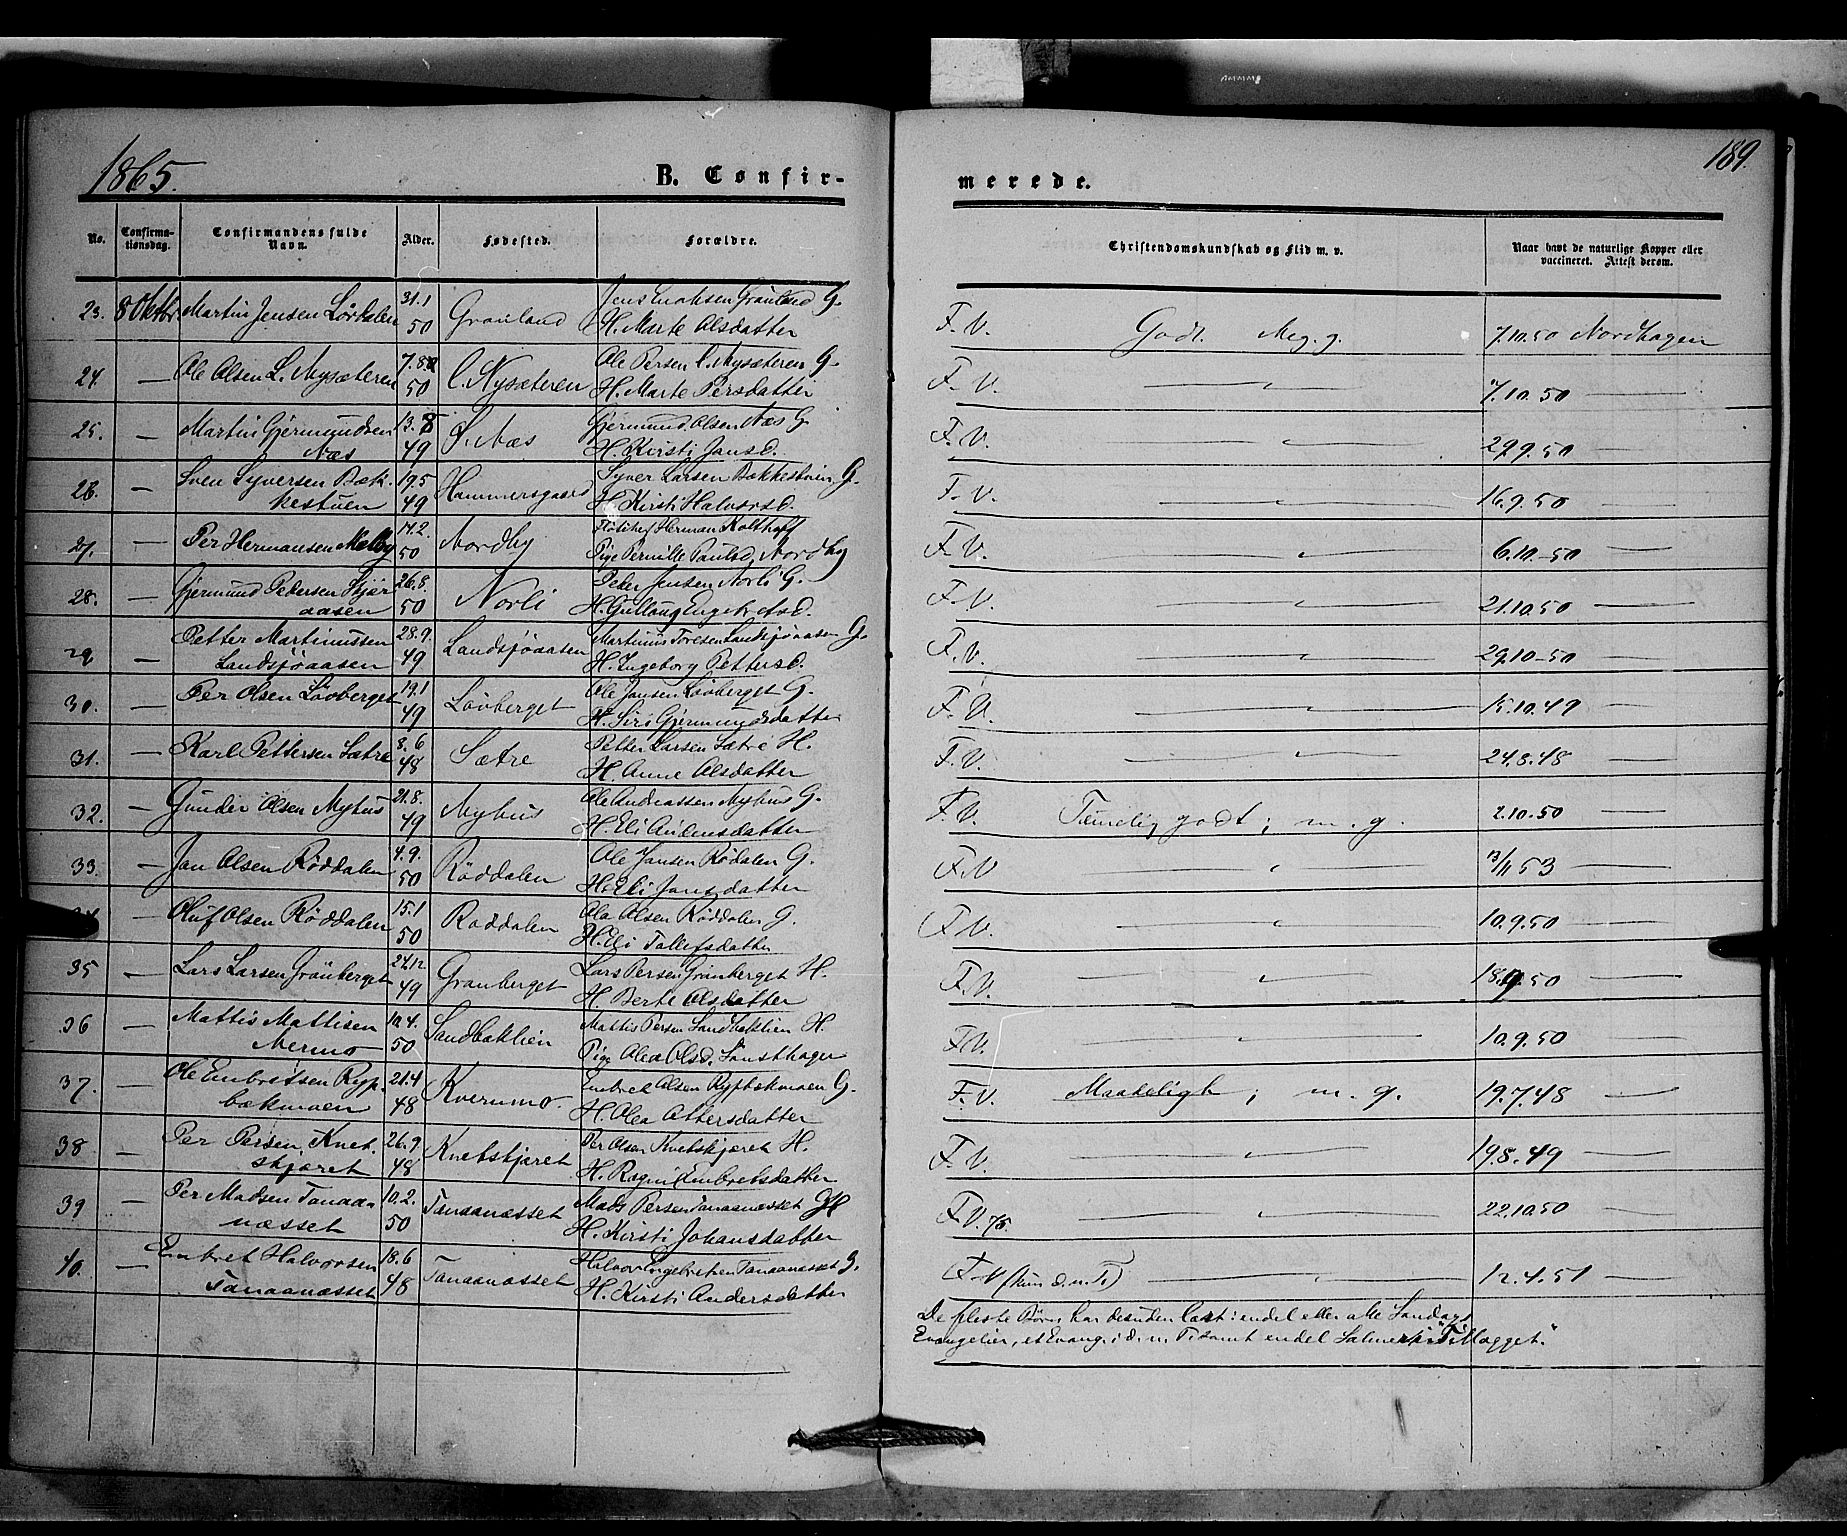 1865.
B. Confir-
merede.
189.
No.
Confirma-
tionsdag.
Confirmandens fulde
Navn.
Alder.
Fødested.
Forældre.
Christendomskundskab og Flid m. v.
Naar havt de naturlige Kopper eller
vaccineret. Attest derom.
23. 8 Oktbr. Martin Jensen Lövdalen 31.1 50 Gronland Jens Enoksen Grönland G. H. Marte Olsdatter F.V. Godt. Meg. g. 7.10.50 Nordhagen
24. — Ole Olsen L. Mysæteren 7.8 50 L. Mysæteren Ole Persen L. Mysæteren G. H. Marte Persdatter F.V. — " — 7.10.50 —
25. — Martin Gjermundsen Næs 13.8 49 Ö. Næs Gjermund Olsen Næs G. H. Kirsti Jansd. F.V. — " — 29.9.50 —
26. — Sven Syversen Bæk-kestuen 19.5 49 Hammersgaard Syver Larsen Bækkestuen G. H. Kirsti Halvorsd. F.V. — " — 16.9.50 —
27. — Per Hermansen Melby 14.2. 50 Nordby Herman Kolthoff Pige Pernille Paulsd. Nordby F.V. — " — 6.10.50 —
28. — Gjermund Pedersen Skjæraasen 26.8. 50 Norli Peder Jensen Norli G. H. Gullaug Engebretsd. F.V. — " — 21.10.50 —
29. — Petter Martinussen Landsjöaasen 28.9. 49 Landsjöaasen Martinus Toresen Landsjöaasen G. H. Ingeborg Pettersd. F.V. — " — 29.10.50 —
30. — Per Olsen Lövberget 19.1 49 Lövberget Ole Jansen Lövberget G. H. Siri Gjermundsdatter F.V. — " — 15.10.49 —
31. — Karl Pettersen Sætre 8.6 48 Sætre Petter Larsen Sætre H. H. Anne Olsdatter F.V. — " — 24.8.48 —
32. — Gunder Olsen Myhus 21.8. 49 Myhus Ole Andreassen Myhus G. H. Eli Audensdatter F.V. Temelig godt; m. g. 2.10.50 —
33. — Jan Olsen Röddalen 4.9. 50 Röddalen Ole Jansen Rödalen G. H. Eli Jansdatter F.V. — " — 13/11 53 —
— Oluf Olsen Röddalen 15.1 50 Röddalen Ola Olsen Röddalen G. H. Eli Tollefsdatter F.V. — " — 10.9.50 —
35 — Lars Larsen Gränberget 27.12 49 Granberget Lars Persen Granberget H. H. Berte Olsdatter F.V. — " — 18.9.50 —
36 — Mattis Mattisen Mermo 10.4. 50 Sandbæklien Mattis Persen Sandbæklien H. Pige Olea Olsd. F.V. — 10.9.50 —
37. — Ole Embretsen Ryp-bækmoen 21.4 48 Kverumo. Embret Olsen Rypbækmoen G. H. Olea Ottersdatter F.V. Maadeligt; m. g. 19.7.48 —
38 — Per Persen Knet-skjæret 26.9. 48 Knetskjæret Per Olsen Knetskjæret H. H. Ragni Embretsdatter F.V. — " — 19.8.49 —
39 — Per Madsen Tanaa-næsset 10.2. 50 Tanaanæsset Mads Persen Tanaanæsset H H. Kirsti Johansdatter F.V. 75. — " — 22.10.50 —
40. — Embret Halvorsen Tanaanæsset 18.6 48 Tanaanæsset Halvor Engebretsen Tanaanæsset G. H. Kirsti Andersdatter F.V. (kun d. n. T.) — " — 12.4.51 —
De fleste Börn har desuden læst: endel eller alle Söndags
Evangelier, et Evang. i d. n. T. samt endel Salmer i "Tillægget."